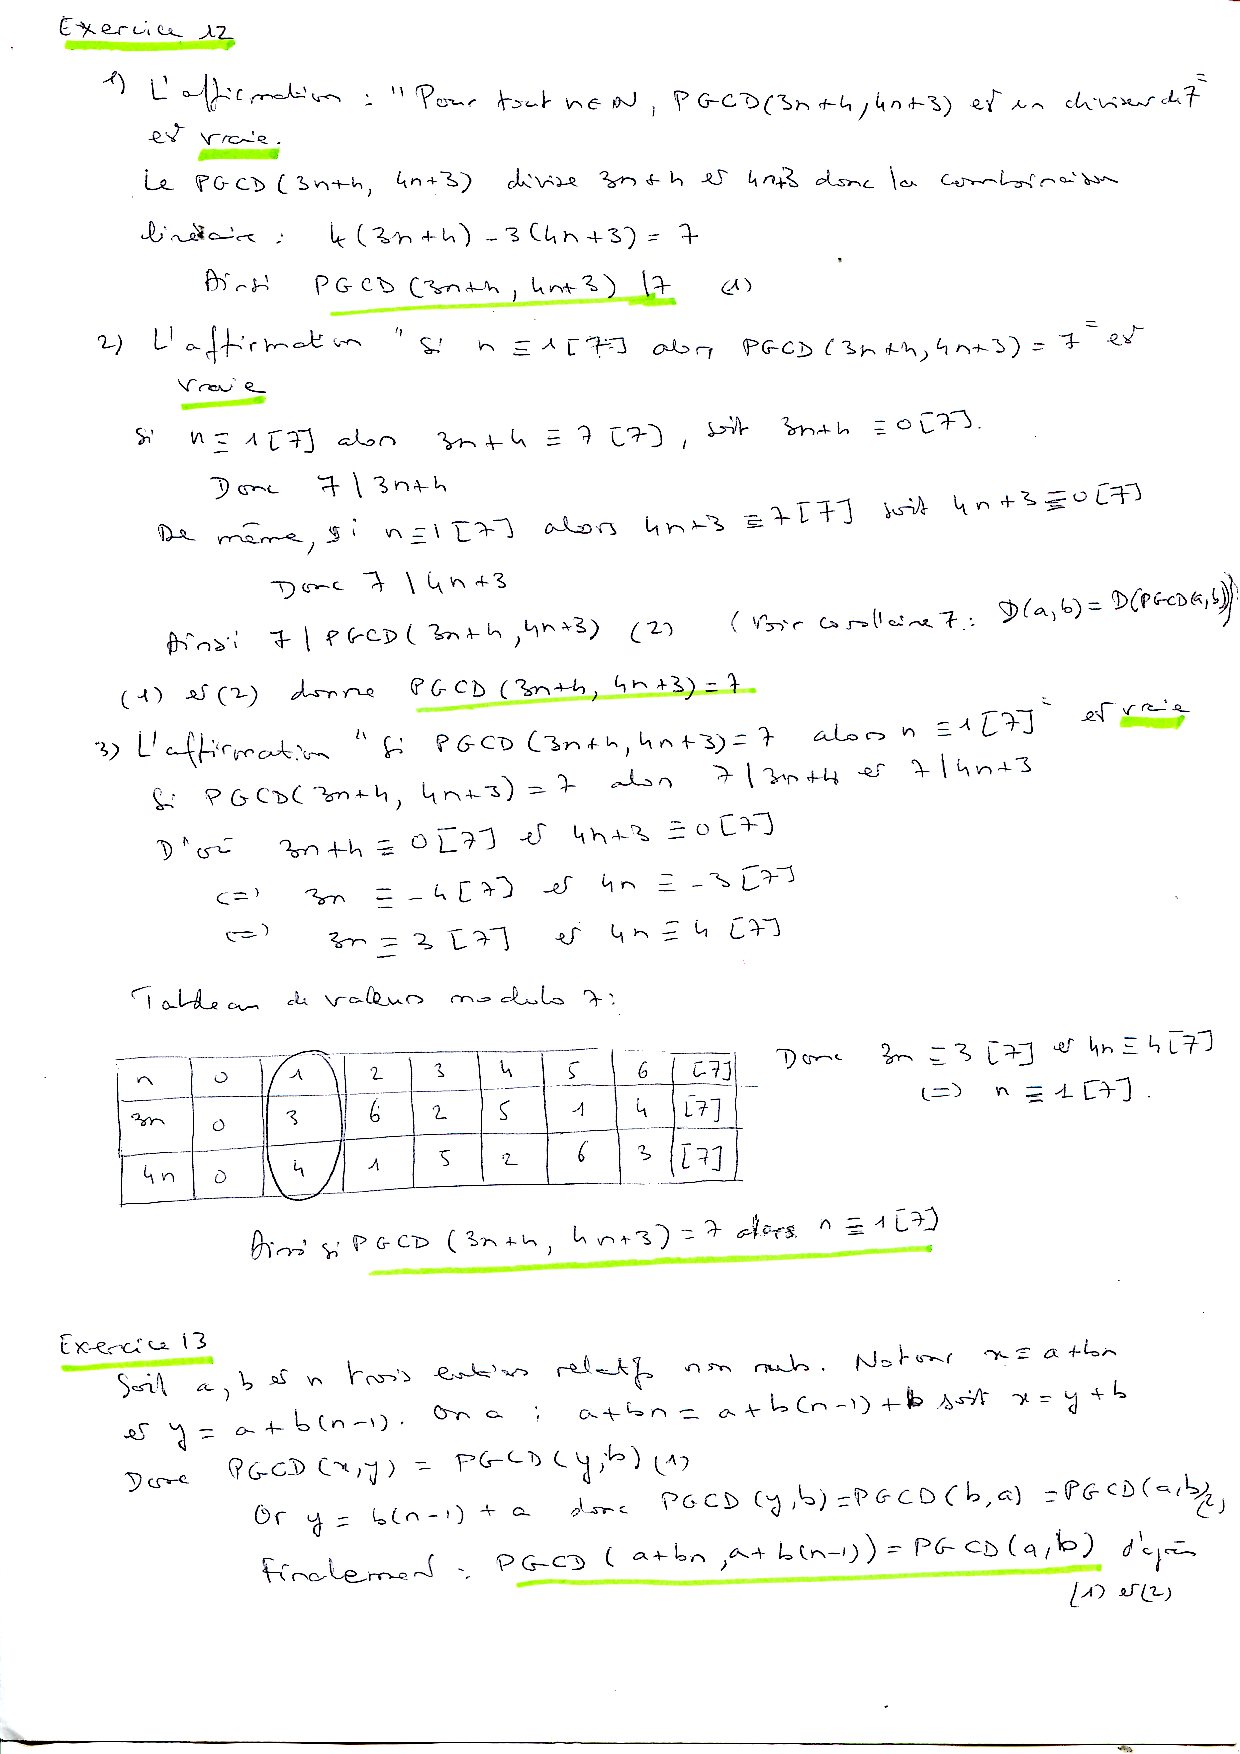 Exercice 12
1) L'affirmation : "Pour tout n∈ℕ, PGCD(3n+4, 4n+3) est un diviseur de 7"
est vraie.
Le PGCD(3n+4, 4n+3) divise 3n+4 et 4n+3 donc la combinaison
linéaire : 4(3n+4) - 3(4n+3) = 7
Ainsi PGCD(3n+4, 4n+3) | 7 (1)
2) L'affirmation "Si n ≡ 1 [7] alors PGCD(3n+4, 4n+3) = 7" est
vraie
Si n ≡ 1 [7] alors 3n+4 ≡ 7 [7], soit 3n+4 ≡ 0 [7].
Donc 7 | 3n+4
De même, si n ≡ 1 [7] alors 4n+3 ≡ 7 [7] soit 4n+3 ≡ 0 [7]
Donc 7 | 4n+3
Ainsi 7 | PGCD(3n+4, 4n+3) (2) (Voir corollaire 7 : D(a,b) = D(PGCD(a,b)))
(1) et (2) donne PGCD(3n+4, 4n+3) = 7
3) L'affirmation "Si PGCD(3n+4, 4n+3) = 7 alors n ≡ 1 [7]" est vraie
Si PGCD(3n+4, 4n+3) = 7 alors 7 | 3n+4 et 7 | 4n+3
D'où 3n+4 ≡ 0 [7] et 4n+3 ≡ 0 [7]
<=> 3n ≡ -4 [7] et 4n ≡ -3 [7]
<=> 3n ≡ 3 [7] et 4n ≡ 4 [7]
Tableau de valeurs modulo 7 :
n 0 1 2 3 4 5 6 [7]
3n 0 3 6 2 5 1 4 [7]
4n 0 4 1 5 2 6 3 [7]
Donc 3n ≡ 3 [7] et 4n ≡ 4 [7]
<=> n ≡ 1 [7].
Ainsi si PGCD(3n+4, 4n+3) = 7 alors n ≡ 1 [7]
Exercice 13
Soit a, b et n trois entiers relatifs non nuls. Notons x = a+bn
et y = a+b(n-1). On a : a+bn = a+b(n-1)+b soit x = y+b
Donc PGCD(x,y) = PGCD(y,b) (1)
Or y = b(n-1) + a donc PGCD(y,b) = PGCD(b,a) = PGCD(a,b) (2)
Finalement : PGCD(a+bn, a+b(n-1)) = PGCD(a,b) d'après
(1) et (2)